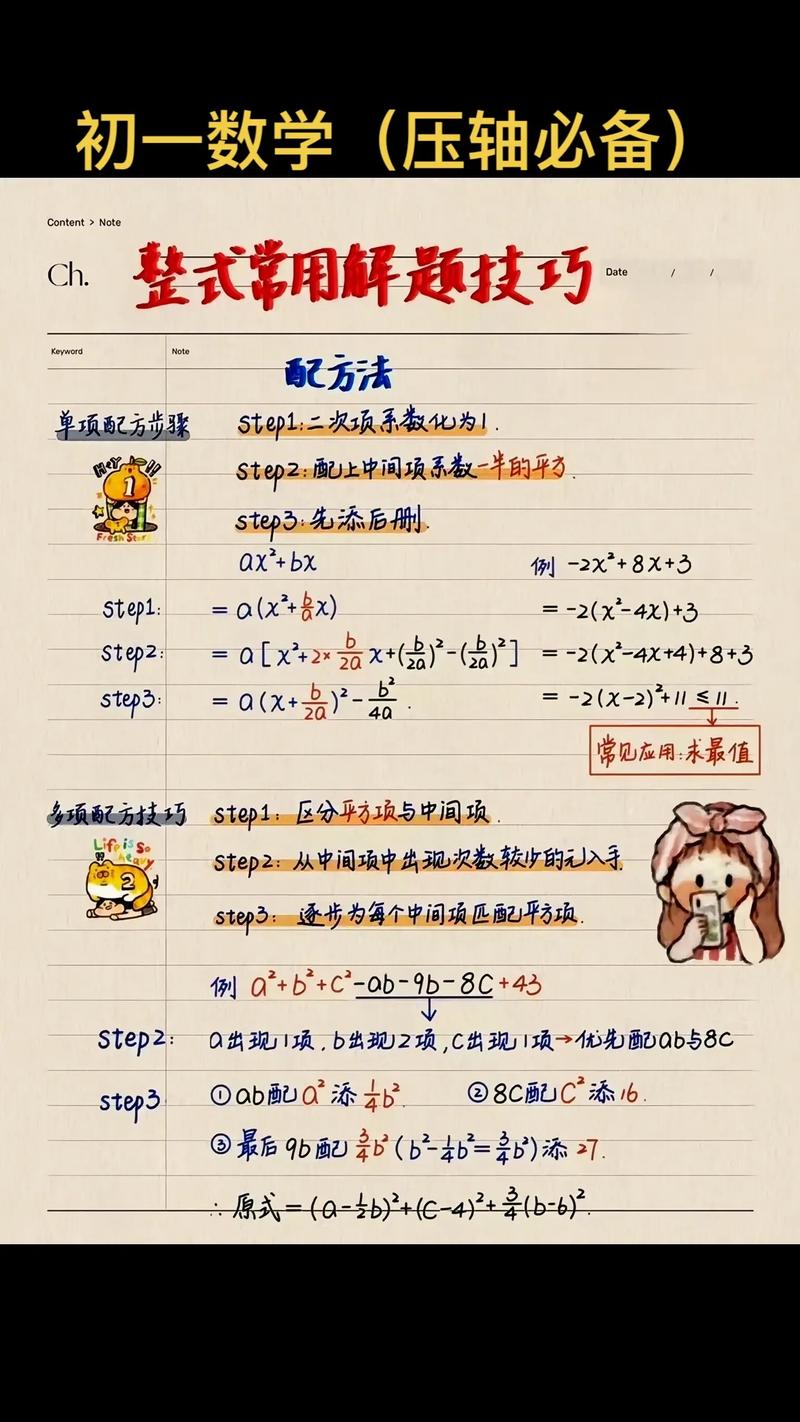 初一数学（压轴必备）
Content > Note
Ch. 整式常用解题技巧 Date / /
Keyword Note
配方法
单项配方步骤 step1:二次项系数化为1.
Hey !!
1
Fresh Start
step2:配上中间项系数一半的平方.
step3:先添后删.
ax²+bx 例 -2x²+8x+3
step1: = a(x²+b/a x) = -2(x²-4x)+3
step2: = a[x²+2×b/2a x+(b/2a)²-(b/2a)²] = -2(x²-4x+4)+8+3
step3: = a(x+b/2a)²-b²/4a. = -2(x-2)²+11 ≤ 11.
常见应用:求最值
多项配方技巧 step1: 区分平方项与中间项.
Life is so heavy
2
step2: 从中间项中出现次数较少的元入手.
step3: 逐步为每个中间项匹配平方项.
例 a²+b²+c²-ab-9b-8c+43
step2: a出现1项,b出现2项,c出现1项→优先配ab与8c
step3 ①ab配a²添1/4b². ②8c配c²添16.
③最后9b配3/4b²(b²-1/4b²=3/4b²)添27.
∴原式=(a-1/2b)²+(c-4)²+3/4(b-6)².